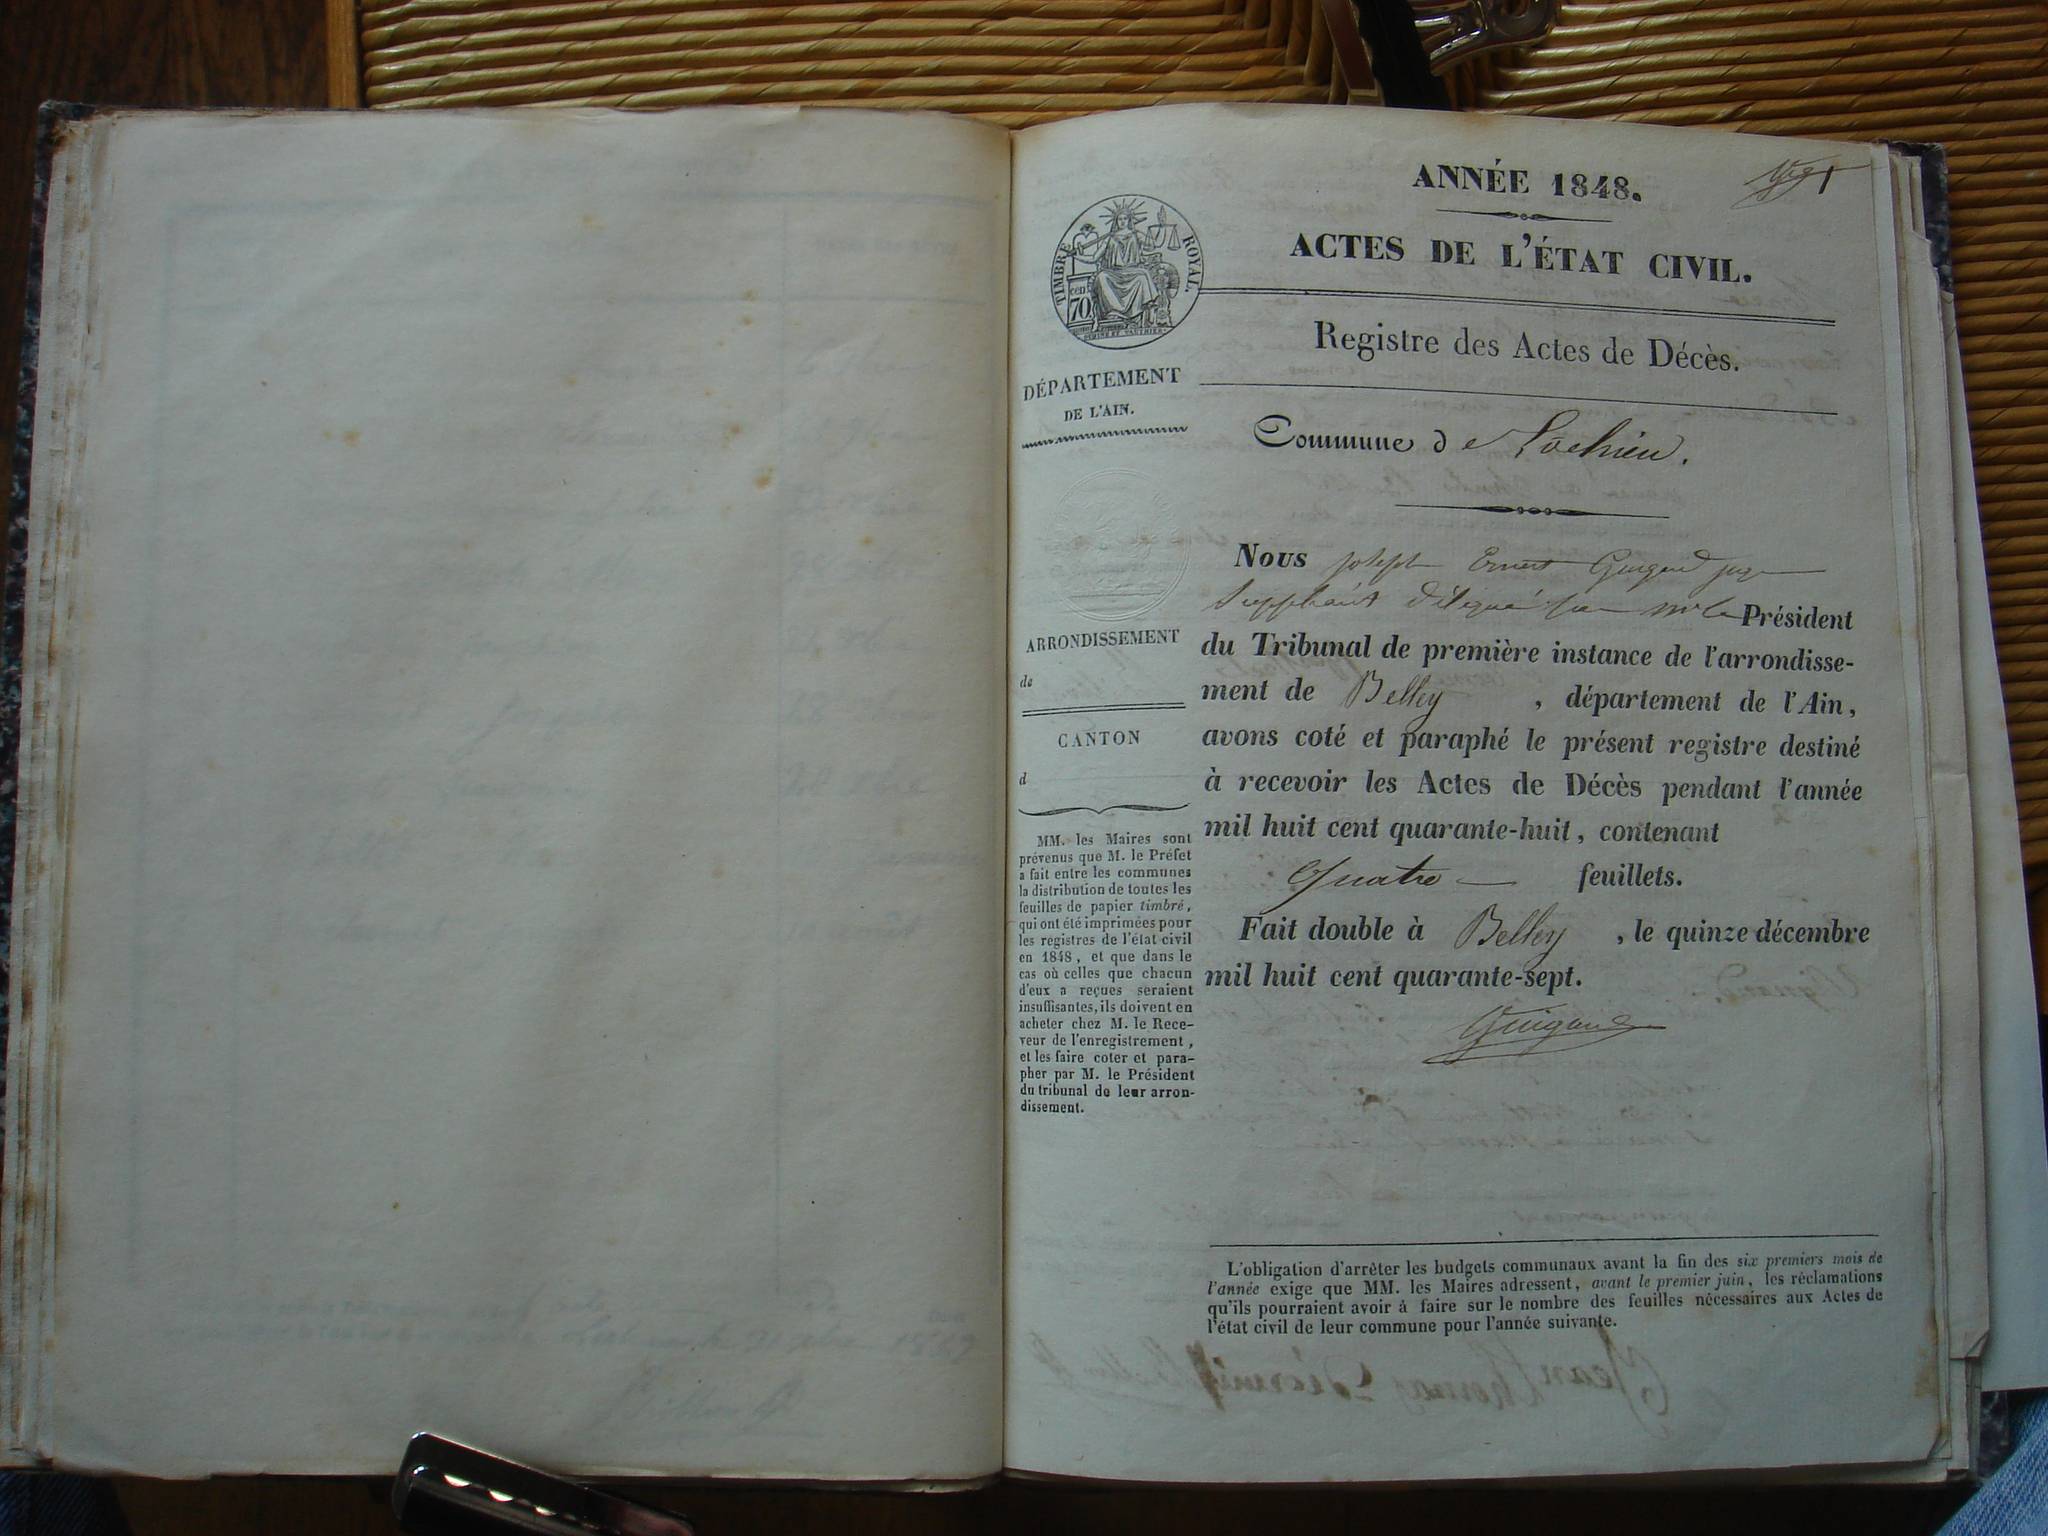 ANNÉE 1848.
1
ACTES DE L'ÉTAT CIVIL.
TIMBRE ROYAL.
cen. 70
Registre des Actes de Décès.
DÉPARTEMENT
DE L'AIN.
Commune de Lochieu.
ARRONDISSEMENT
de
CANTON
d
MM. les Maires sont
prévenus que M. le Préfet
a fait entre les communes
la distribution de toutes les
feuilles de papier timbré,
qui ont été imprimées pour
les registres de l'état civil
en 1848, et que dans le
cas où celles que chacun
d'eux a reçues seraient
insuffisantes, ils doivent en
acheter chez M. le Rece-
veur de l'enregistrement,
et les faire coter et para-
pher par M. le Président
du tribunal de leur arron-
dissement.
Nous Joseph Ernest Guigard juge
Suppléant délégué par mr le Président
du Tribunal de première instance de l'arrondisse-
ment de Belley, département de l'Ain,
avons coté et paraphé le présent registre destiné
à recevoir les Actes de Décès pendant l'année
mil huit cent quarante-huit, contenant
quatre feuillets.
Fait double à Belley, le quinze décembre
mil huit cent quarante-sept.
Guigard
L'obligation d'arrêter les budgets communaux avant la fin des six premiers mois de
l'année exige que MM. les Maires adressent, avant le premier juin, les réclamations
qu'ils pourraient avoir à faire sur le nombre des feuilles nécessaires aux Actes de
l'état civil de leur commune pour l'année suivante.